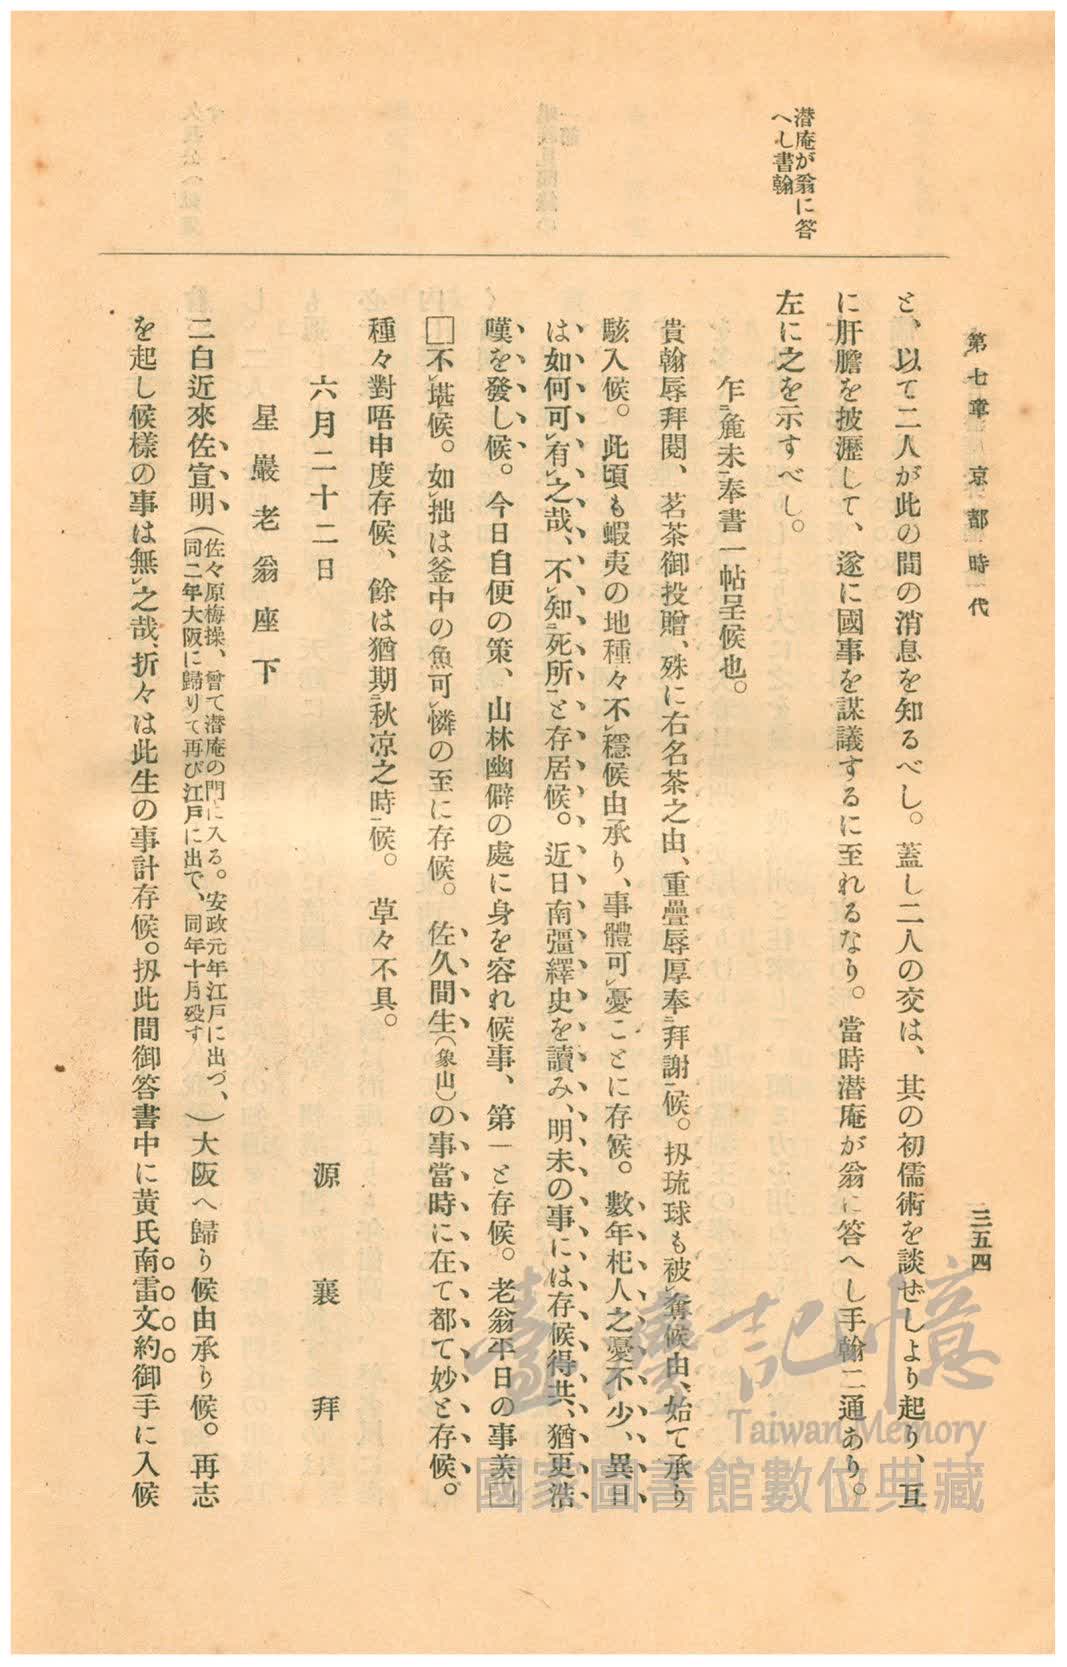 第七章 京都時代
三五四
潜庵が翁に答
へし書翰
と、以て二人が此の間の消息を知るべし。蓋し二人の交は、其の初儒術を談ぜしより起り、互
に肝膽を披瀝して、遂に國事を謀議するに至れるなり。當時潜庵が翁に答へし手翰二通あり。
左に之を示すべし。
乍㆓麁末㆒奉書一帖呈候也。
貴翰辱拜閱、茗茶御投贈、殊に右名茶之由、重疊辱厚奉㆓拜謝㆒候。扨琉球も被㆑奪候由、始て承り
駭入候。此頃も蝦夷の地種々不㆑穩候由承り、事體可㆑憂ことに存候。數年杞人之憂不㆑少、異日
は如何可㆑有㆑之哉、不㆑知㆓死所㆒と存居候。近日南彊繹史を讀み、明末の事には存候得共、猶更浩
嘆を發し候。今日自便の策、山林幽僻の處に身を容れ候事、第一と存候。老翁平日の事羨□
□不㆑堪候。如㆑拙は釜中の魚可㆑憐の至に存候。佐久間生(象山)の事當時に在て都て妙と存候。
種々對晤申度存候、餘は猶期㆓秋凉之時㆒候。草々不具。
六月二十二日
源襄拜
星巖老翁座下
二白近來佐宣明(佐々原梅操、曾て潜庵の門に入る。安政元年江戸に出づ、
同二年大阪に歸りて再び江戸に出で、同年十月歿す)大阪へ歸り候由承り候。再志
を起し候樣の事は無㆑之哉、折々は此生の事計存候。扨此間御答書中に黄氏南雷文約御手に入候
臺灣記憶
Taiwan Memory
國家圖書館數位典藏